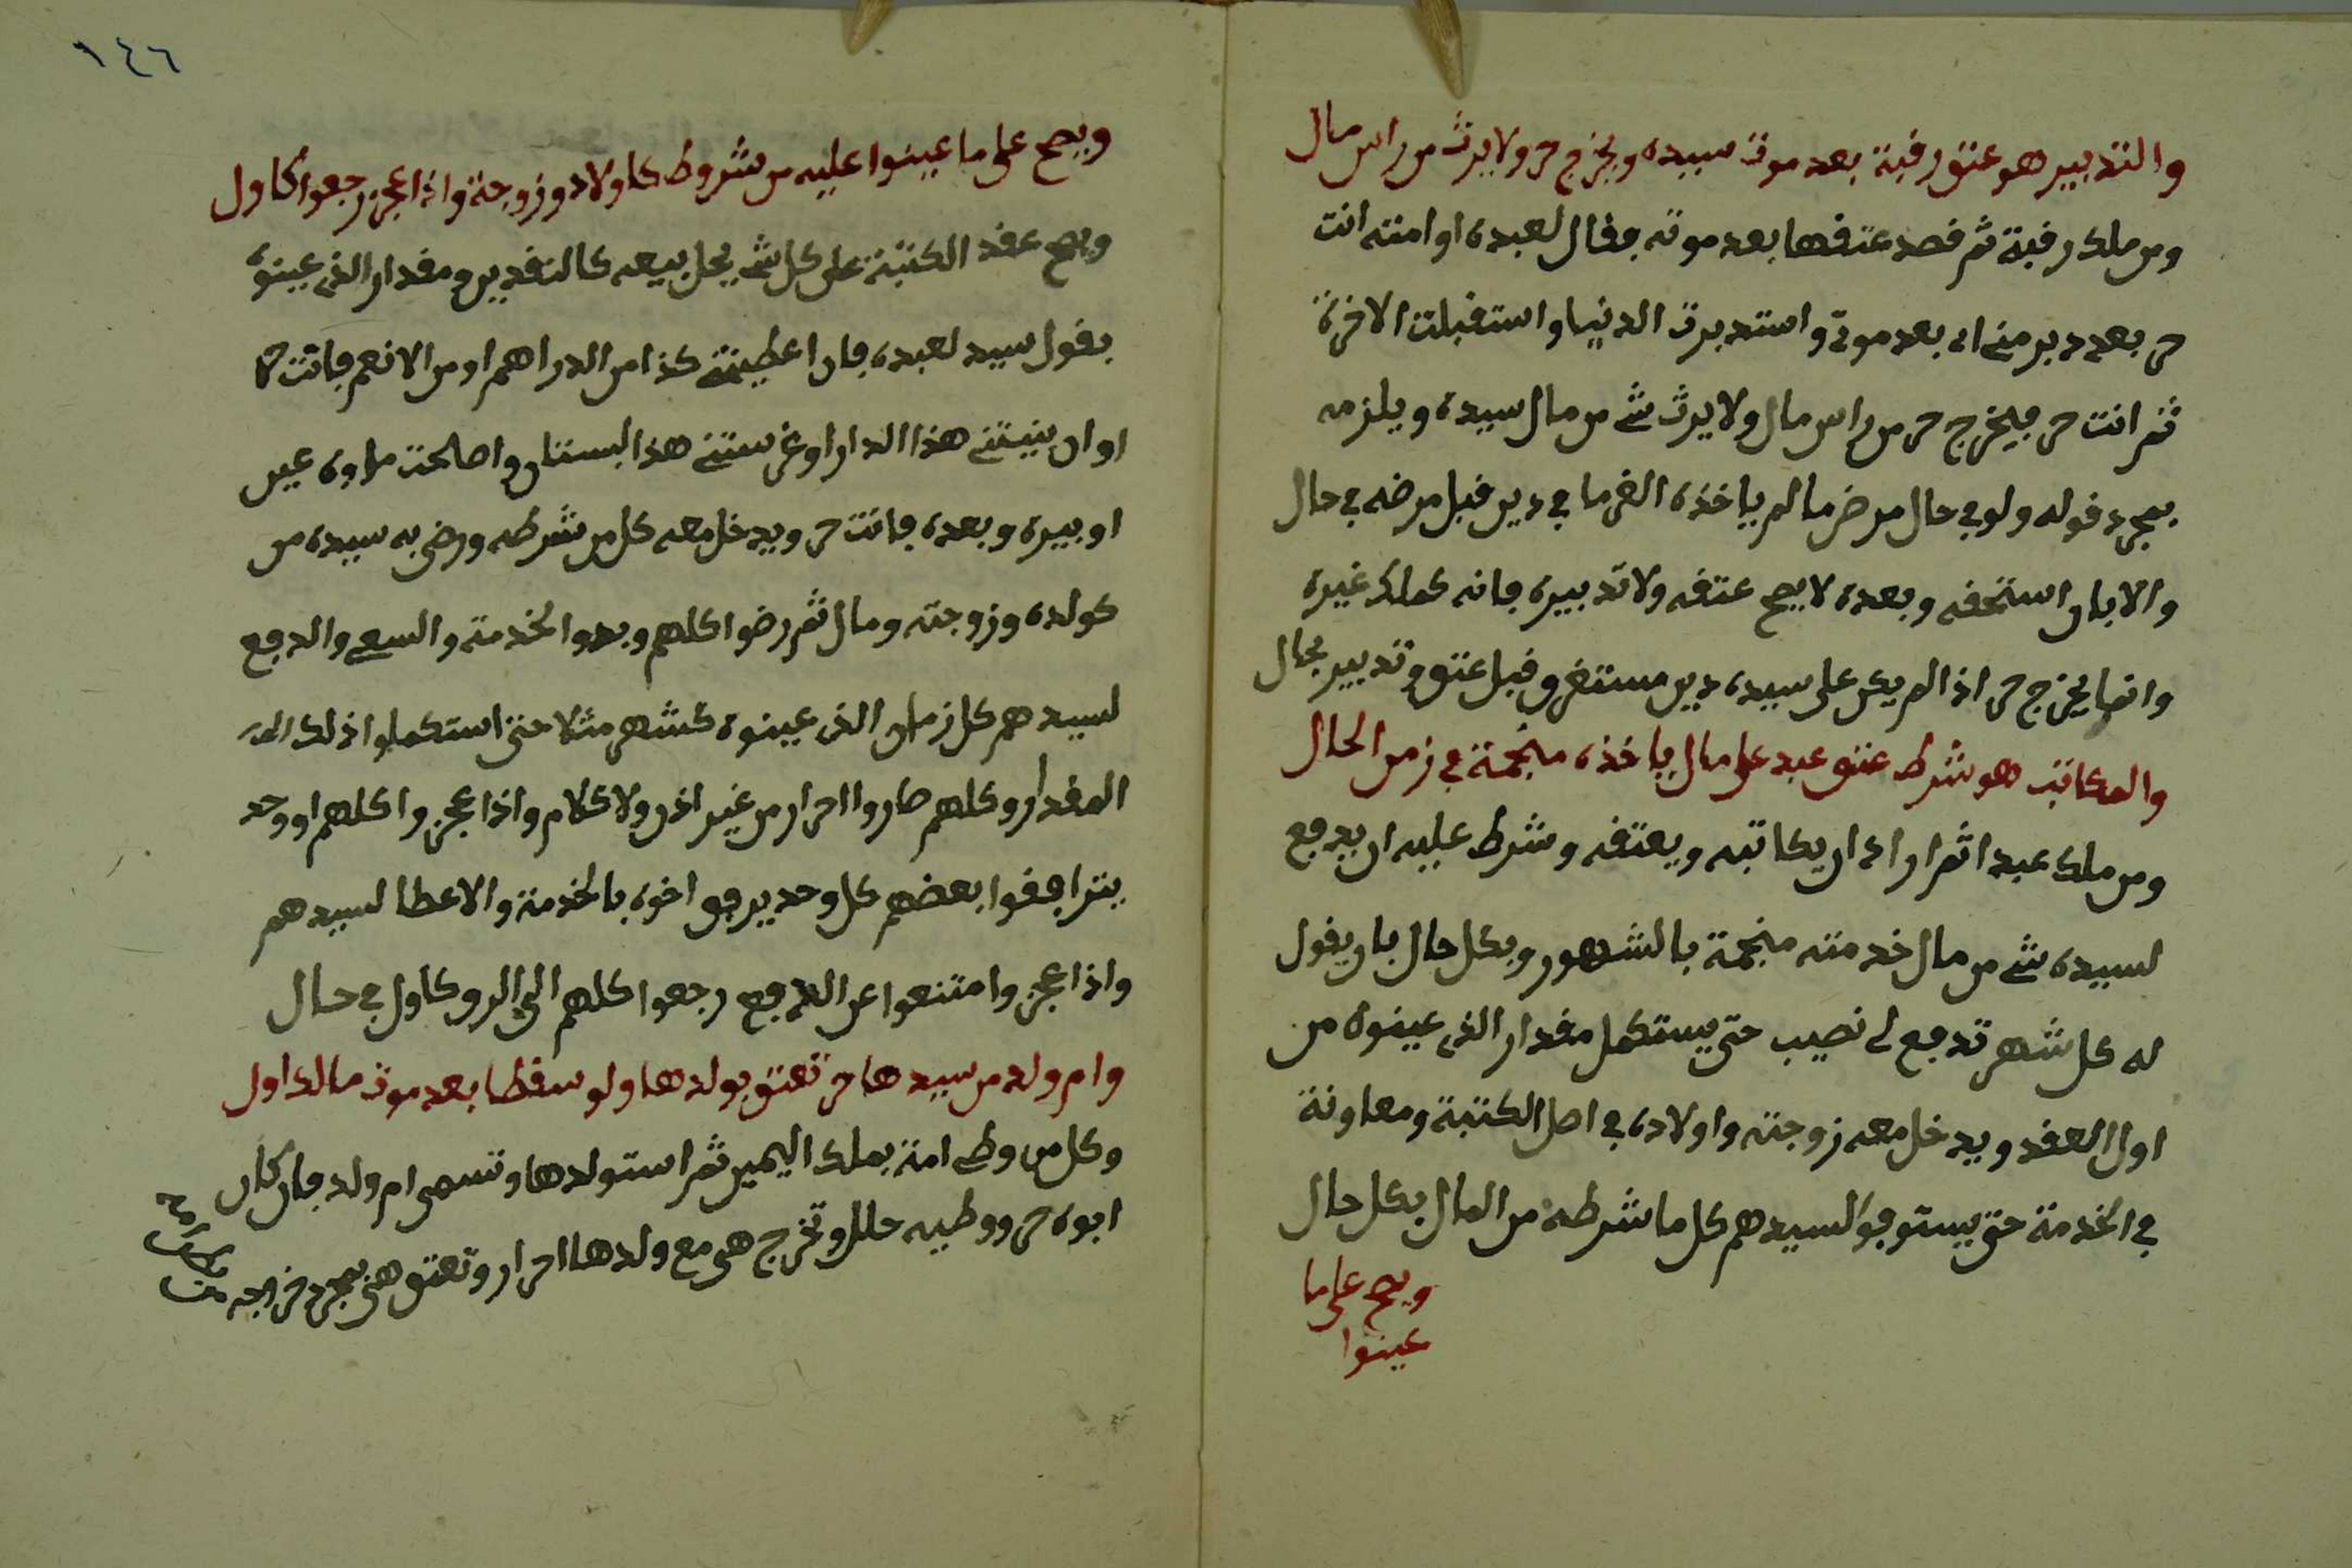 والتدبير هو عتق رقبة بعد موت سيده ويخرج حر ولا يرث من راس مال
ومن ملك رقبة ثم قصد عتقها بعد موته فقال لعبده او امته انت
حر بعد دبر مني اي بعد موتي واستدبرت الدنيا واستقبلت الاخرة
ثم انت حر فيخرج حر من راس مال ولا يرث شي من مال سيده ويلزمه
بمجرد قوله ولو في حال مرض ما لم ياخذه الغرما في دين قبل مرضه في حال
والا بان استحقه وبعده لا يصح عتقه ولا تدبيره فانه كملك غيره
وانما يخرج حر اذا لم يكن على سيده دين مستغرق قبل عتق وتدبير بحال
والمكاتبة هو شرط عتق عبد على مال ياخذه منجمة في زمن الحال
ومن ملك عبدا ثم اراد ان يكاتبه ويعتقه وشرط عليه ان يدفع
لسيده شي من مال خدمته منجمة بالشهور وبكل حال بان يقول
له كل شهر تدفع لي نصيب حتى يستكمل مقدار الذي عينوه من
اول العقد ويدخل معه زوجته واولاده في اصل الكتبة ومعاونة
في الخدمة حتى يستوفوا لسيدهم كل ما شرطه من المال بكل حال
ويصح على ما
عينوا
١٤٦
ويصح على ما عينوا عليه من شروط كاولاد وزوجة واذا عجز رجعوا كاول
ويصح عقد الكتبة على كل شي يحل بيعه كالنقدين ومقدار الذي عينوه
بقول سيد لعبده فان اعطيتني كذا من الدراهم او من الانعم فانت حر
او ان بنيتني هذا الدار او غرستني هذا البستان واصلحت ماوه عين
او بيره وبعده فانت حر ويدخل معه كل من شرطه ورضي به سيده من
كولده وزوجته ومال ثم رضوا كلهم وبدوا الخدمة والسعي والدفع
لسيدهم كل زمان الذي عينوه كشهر مثلا حتى استكملوا ذلك
المقدار وكلهم صاروا احرار من غير اذن ولا كلام واذا عجزوا كلهم او وحد
يترافقوا بعضهم كل وحد يرفق اخوه بالخدمة والاعطا لسيدهم
واذا عجز وامتنعوا عن الدفع رجعوا كلهم الى الرق كاول في حال
وام ولد من سيدها حر تعتق بولدها ولو سقطا بعد موت مالك اول
وكل من وطي امة بملك اليمين ثم استولدها وتسمى ام ولد فان كان
ابوه حر ووطيه حلل وتخرج هي مع ولدها احرار وتعتق هي بمجرد خراجه